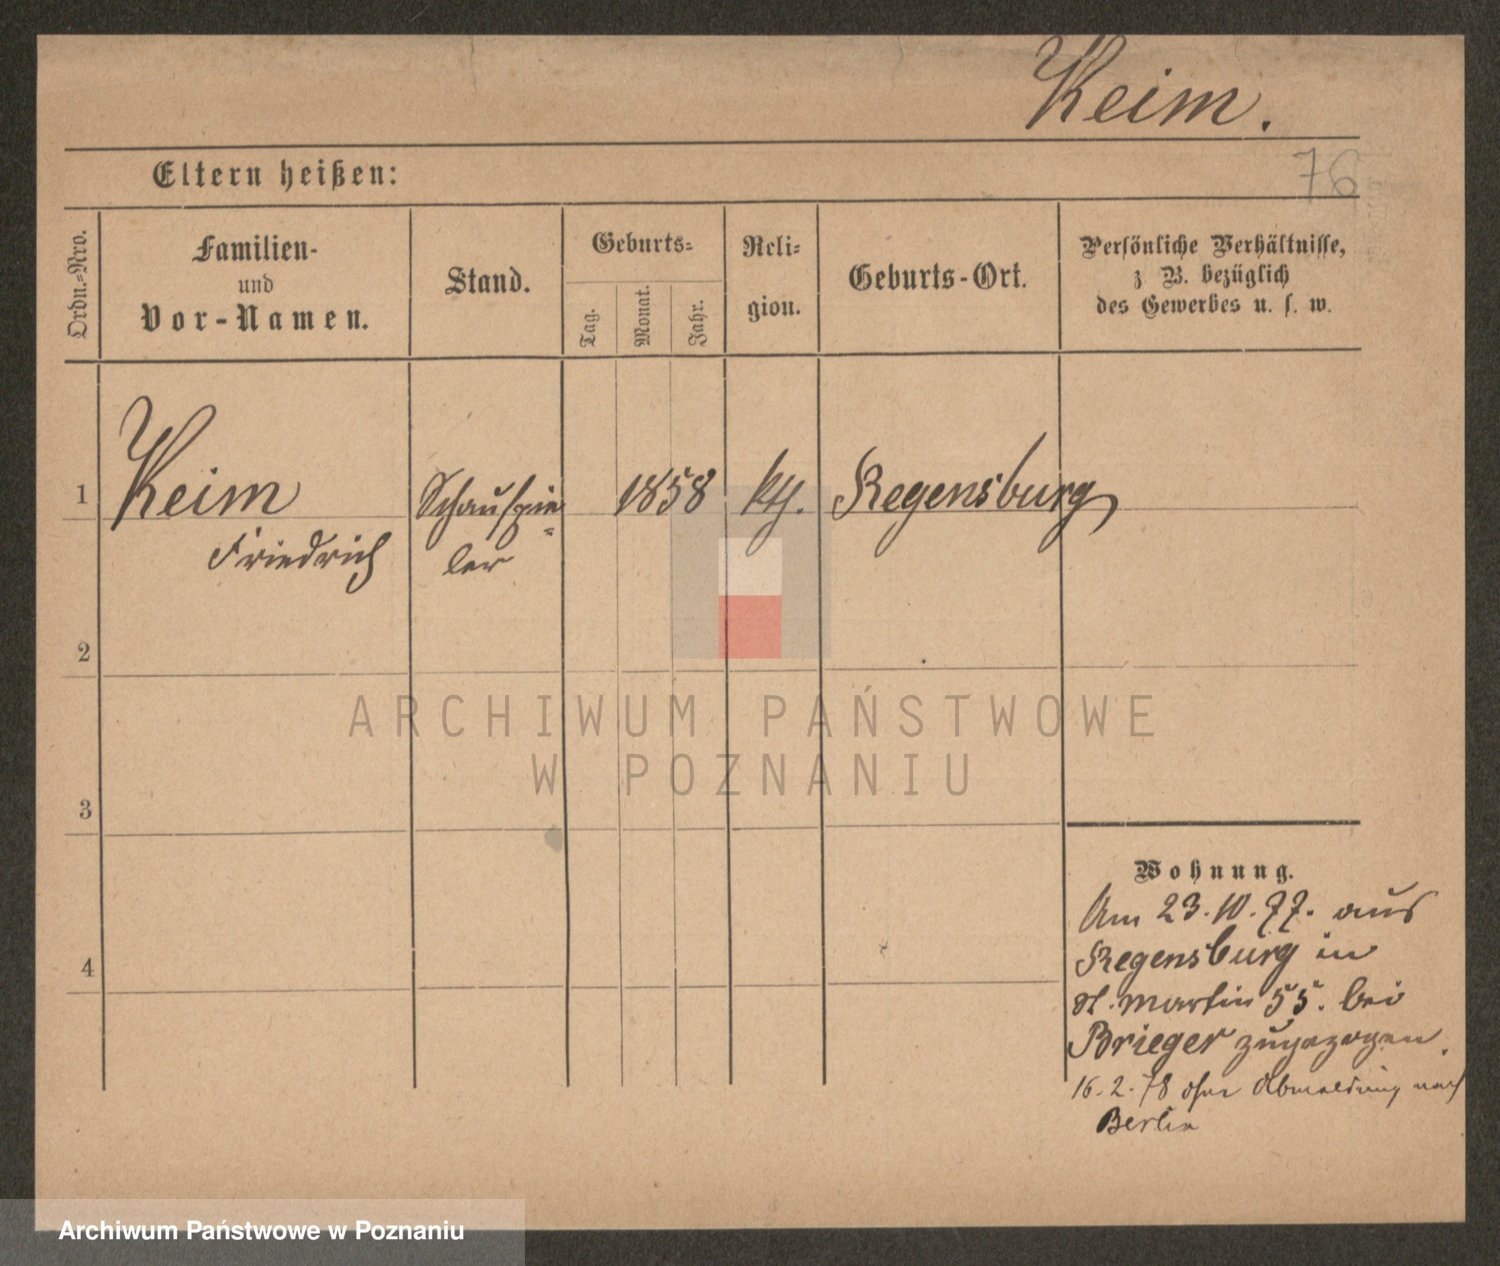 Keim.
Eltern heißen:
76
Ordn.=Nro.
Familien-
und
Vor-Namen.
Stand.
Geburts=
Tag.
Monat.
Jahr.
Reli=
gion.
Geburts-Ort.
Persönliche Verhältnisse,
z. B. bezüglich
des Gewerbes u. s. w.
1
Keim
Friedrich
Schauspie=
ler
1858
kth.
Regensburg
2
3
4
Wohnung.
Am 23.10.77. aus
Regensburg in
St. Martin 55. bei
Brieger zugezogen.
16.2.78 ohne Abmeldung nach
Berlin
ARCHIWUM PAŃSTWOWE
W POZNANIU
Archiwum Państwowe w Poznaniu